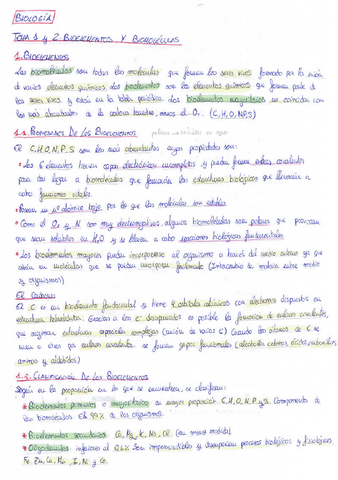 BIOLOGÍA
TEMA 1 y 2. BIOELEMENTOS Y BIOMOLÉCULAS
1. BIOELEMENTOS
Las biomoléculas son todas las moléculas que forman los seres vivos formadas por la unión
de varios elementos químicos. Los bioelementos son los elementos químicos que forman parte de
los seres vivos y están en la tabla periódica. Los bioelementos mayoritarios no coinciden con
los más abundantes de la corteza terrestre, menos el O. (C,H,O,N,P,S)
1.1. PROPIEDADES DE LOS BIOELEMENTOS
El C,H,O,N,P,S son los más abundantes cuyas propiedades son:
• Los 6 elementos tienen capas electrónicas incompletas y pueden formar enlaces covalentes
para dar lugar a biomoléculas que formarán las estructuras biológicas que llevarán a
cabo funciones vitales.
• Poseen un nº atómico bajo, por lo que las moléculas son estables
• Como el O y N son muy electronegativos, algunas biomoléculas son polares que provocan
que sean solubles en H2O y se lleven a cabo reacciones biológicas fundamentales
• Los bioelementos mayores pueden incorporarse al organismo a través del medio externo ya que
están en moléculas que se pueden incorporar fácilmente (intercambio de materia entre medio
y organismos)
El Carbono
El C es un bioelemento fundamental y tiene 4 orbitales atómicos con electrones dispuestos en
estructura tetraédrica. Gracias a los e- desapareados es posible la formación de enlaces covalentes,
que originan estructuras espaciales complejas (unión de varios C) Cuando los átomos de C se
unen a otros por enlaces covalentes se forman grupos funcionales (alcoholes,
aminas y aldehídos)
1.2. CLASIFICACIÓN DE LOS BIOELEMENTOS
Según en la proporción en la que se encuentran, se clasifican:
* Bioelementos primarios o mayoritarios en mayor proporción C,H,O,N,P y S. Componente de
las biomoléculas. El 99% de los organismos.
* Bioelementos secundarios Ca, Mg, K, Na, Cl. (en menor medida)
* Oligoelementos inferiores al 0,1% Son imprescindibles y desempeñan procesos biológicos y fisiológicos.
Fe, Zn, Cu, Mn, I, Ni y Co.